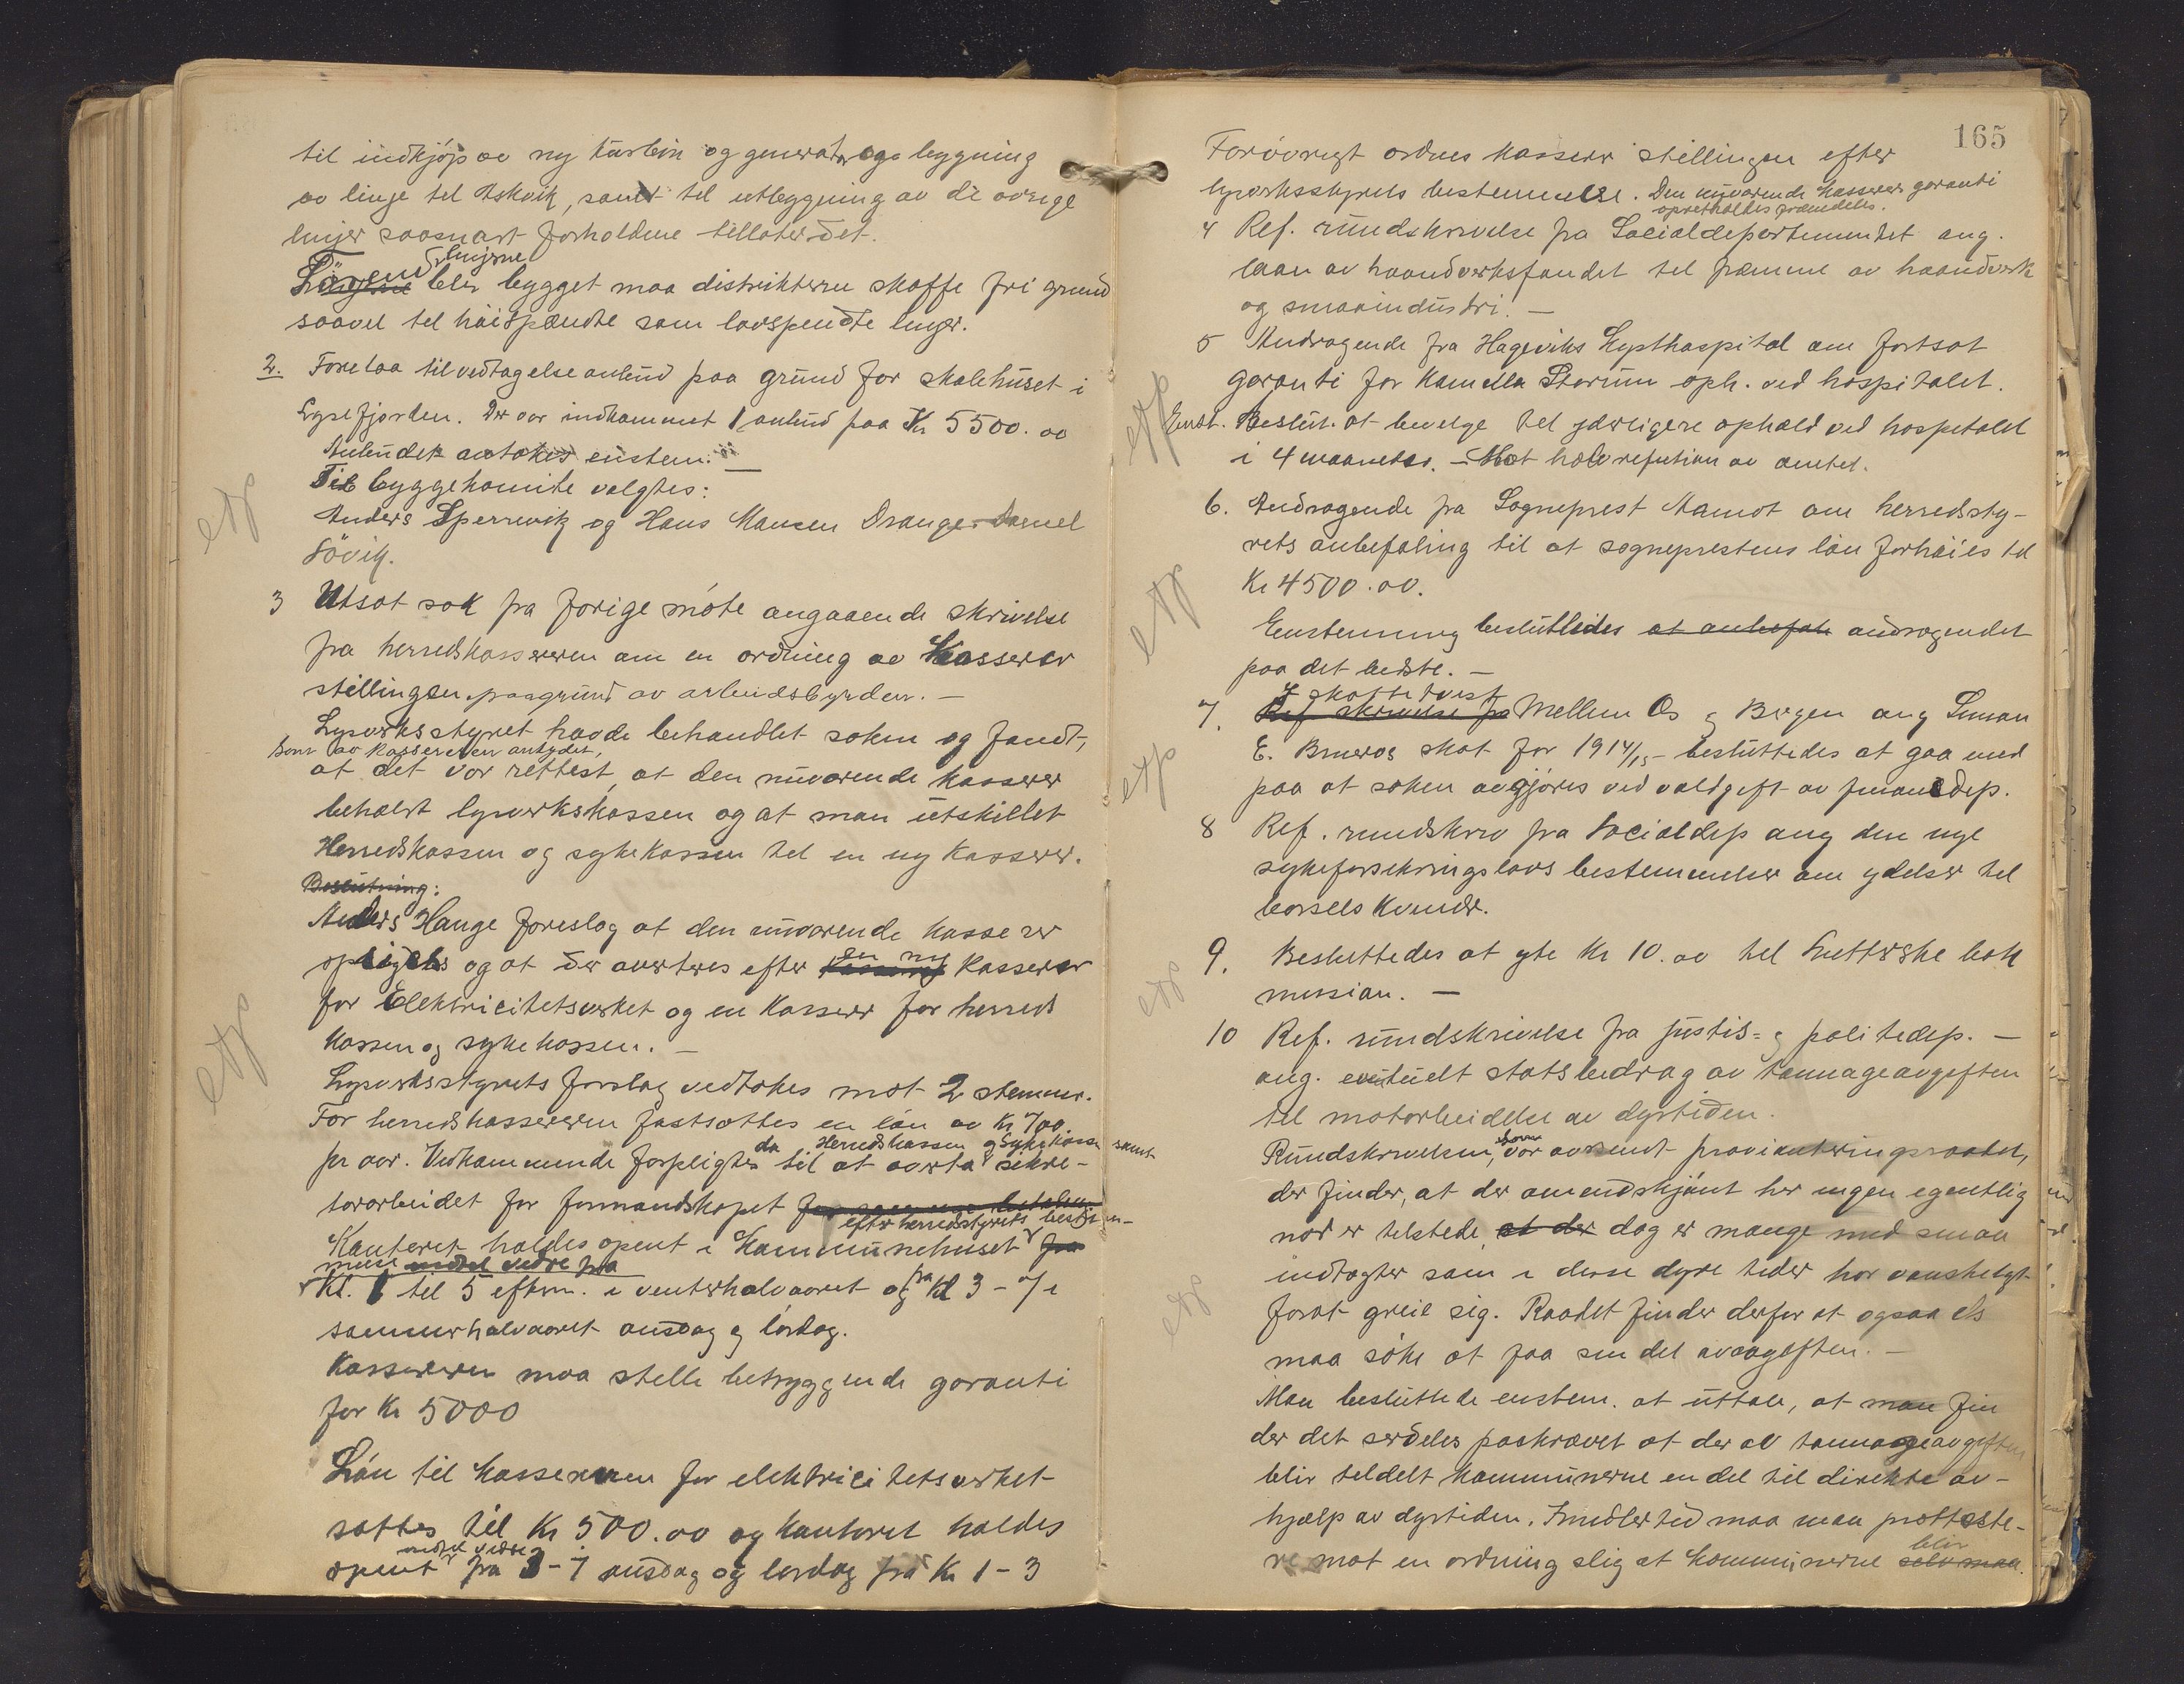 til indkjøp av ny turbin og generator ogs bygning
av linje til Askvik, samt til utbygning av de øvrige
linjer saasnart forholdene tillater det.
Før linjerne
blir bygget maa distrikterne skaffe fri grund
saavel til høispændte som lavspendte linjer.
2. Forelaa til vedtagelse anbud paa grund for skolehuset i
Lysefjorden. Der var indkommet 1 anbud paa Kr 5500.00
Anbudet antokes enstem. —
Til byggekomite valgtes:
Anders Sperrevik og Hans Mausen Drange. Daniel
Søvik.
3 Utsat sak fra forige møte angaaende skrivelse
fra herredskassereren om en ordning av Kasserer
stillingen paagrund av arbeidsbyrden. —
Lysverksstyret havde behandlet saken og fandt,
som av kassereren antydet,
at det var rettest, at den nuværende kasserer
beholdt lysverkskassen og at man utskillet
Herredskassen og sykekassen til en ny Kasserer.
Beslutning:
Anders Hauge foreslog at den nuværende kasserer
en ny
opsigels og at der averteres efter Kasserer
for Elektricitetsverket og en Kasserer for herreds
kassen og sykekassen. —
Lysverksstyrets forslag vedtokes mot 2 stemmer.
For herredskassereren fastsattes en løn av Kr 700.
da Herredskassen og Sykekassen samt
pr aar. Vedkommende forpligtes til at overta sekre-
torarbeidet for formandskapet
efter herredstyrets bestem-
Kontoret holdes opent i Kommunehuset fra
melse
Kl. 1 til 5 efterm. i vinterhalvaaret og fra Kl 3 - 7 i
sommerhalvaaret onsdag og lørdag.
Kassereren maa stelle betryggende garanti
for Kr 5000
Løn til kassereren for elektricitetsverket
sattes til Kr 500.00 og kontoret holdes
opent fra 3 - 7 onsdag og lørdag fra Kl 1 - 3
165
Forøvrigt ordnes kasserer stillingen efter
lysverksstyrets bestemmelse. Den nuværende kasserers garanti
opretholdes fremdeles.
4 Ref. rundskrivelse fra Socialdepartementet ang.
laan av haandverksfondet til fremme av haandverk
og smaaindustri. —
5 Andragende fra Hageviks Kysthospital om fortsat
garanti for Kamilla Storum oph. ved hospitalet.
Enst. Beslut. at bevilge til yderligere ophold ved hospitalet
i 4 maaneder. — Mot halv refution av amtet.
6. Andragende fra Sogneprest Aamot om herredsty-
rets anbefaling til at sogneprestens løn forhøies til
Kr 4500.00.
Enstemmig besluttedes at anbefale andragendet
paa det bedste. —
I skattetvist
7. Ref skrivelse fra Mellem Os og Bergen ang Simon
E. Brueros skat for 1914/15 - besluttedes at gaa med
paa at saken avgjøres ved voldgift av finansdep.
8 Ref. rundskriv fra Socialdep ang den nye
sykeforsikringslovs bestemmelser om ydelser til
barsels kvinder.
9. Besluttedes at yte Kr 10.00 til Lutherske bok
mission. —
10 Ref. rundskrivelse fra justis- og politidep. —
ang. eventuelt statsbidrag av tonnageavgiften
til motarbeidelse av dyrtiden.
Rundskrivelsen, var avsendt provianteringsraadet,
der finder, at der omendskjønt her ingen egentlig
nød er tilstede at der dog er mange med smaa
indtægter som i disse dyre tider har vanskeligt
forat greie sig. Raadet finder derfor at ogsaa Os
maa søke at faa sin del av avgiften. —
Man besluttede enstem. at uttale, at man fin
der det serdeles paakrævet at der av tonnageavgiften
blir tildelt kommunerne en del til direkte av-
hjælp av dyrtiden. Imidlertid maa man protteste-
blir
re mot en ordning slig at kommunerne selv maa.